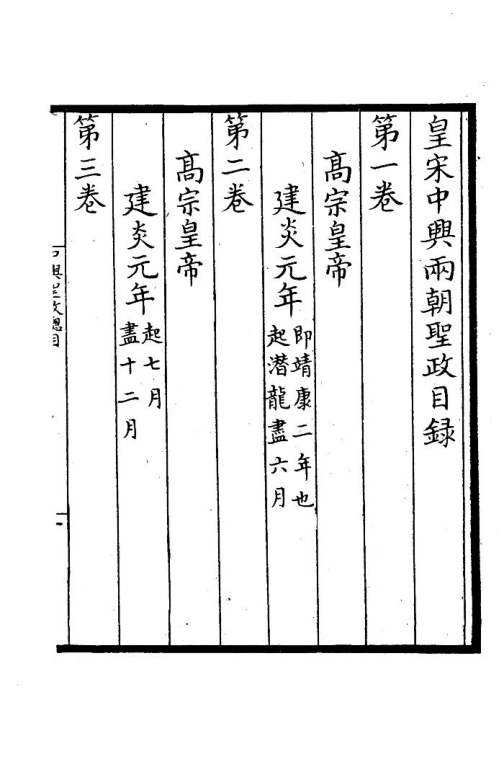 皇宋中興兩朝聖政目録
第一卷
髙宗皇帝
建炎元年即靖康二年也
起潜龍盡六月
第二卷
髙宗皇帝
建炎元年起七月
盡十二月
第三卷
中興聖政總目
一